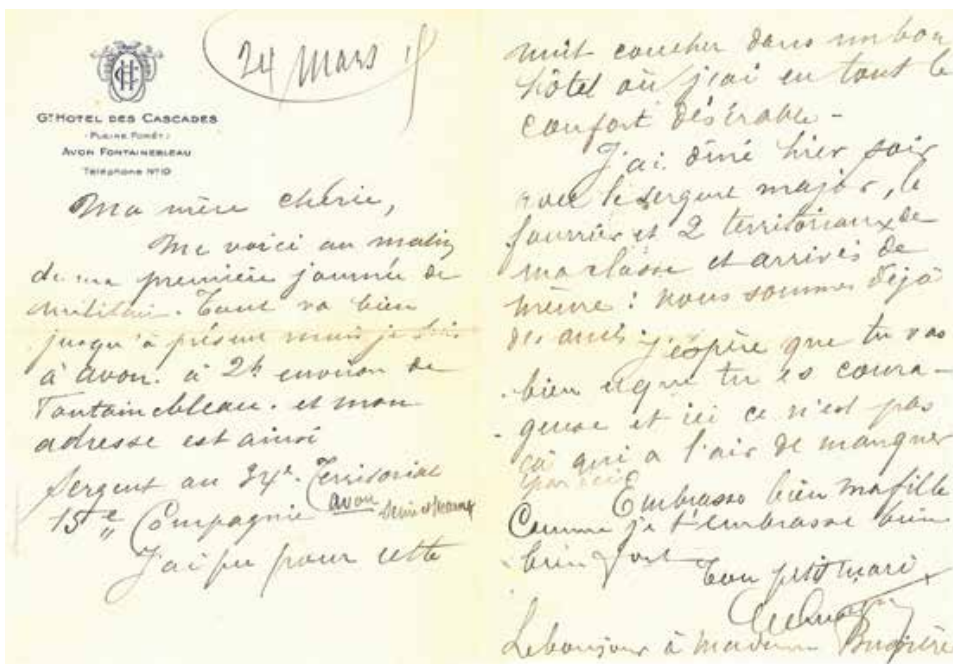 24 Mars 15
Gd HOTEL DES CASCADES
(PLEINE FORÊT)
AVON FONTAINEBLEAU
Téléphone Nº 10
Ma mère chérie,
Me voici au matin
de ma première journée de
. Tout va bien
jusqu'à présent mais je suis
à Avon. à 2k environ de
Fontainebleau. et mon
adresse est ainsi
Sergent au 34e Territorial
15e Compagnie Avon Seine et Marne
J'ai pu pour cette
nuit coucher dans un bon
hôtel où j'ai eu tout le
confort désirable -
J'ai dîné hier soir
avec le sergent major, le
fourrier et 2 territoriaux de
ma classe et arrivés de
même : nous sommes déjà
des amis. J'espère que tu vas
bien et que tu es coura-
geuse et ici ce n'est pas
ça qui a l'air de manquer
par ici
Embrasse bien ma fille
Comme je t'embrasse bien
bien fort
Ton petit mari
Le bonjour à madame